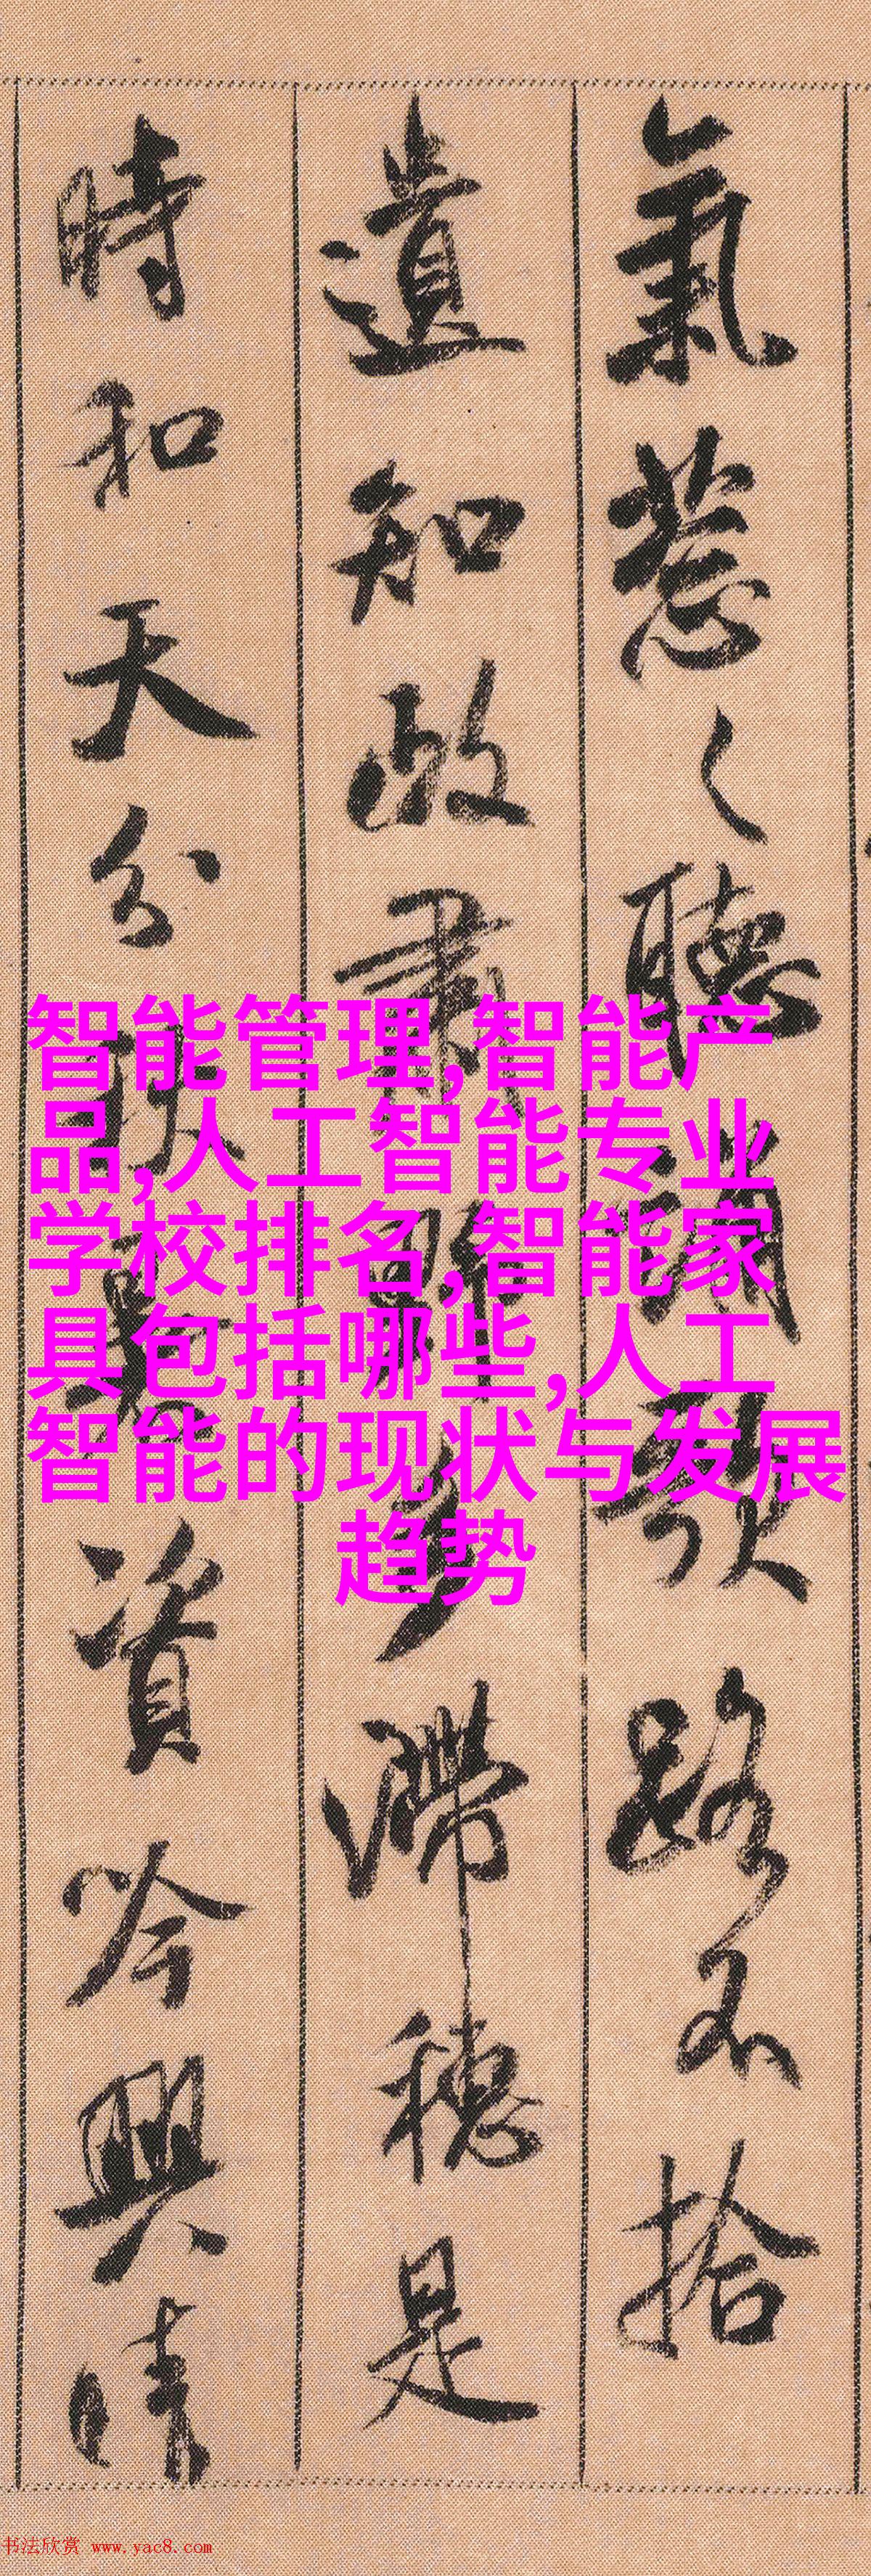 氣葱々聽誦歌路不拾
遺知政肅野多滯穗是
時和天分秋暑資吟興晴
智能管理,智能产
品,人工智能专业
学校排名,智能家
具包括哪些,人工
智能的现状与发展
趋势
书法欣赏 www.yac8.com